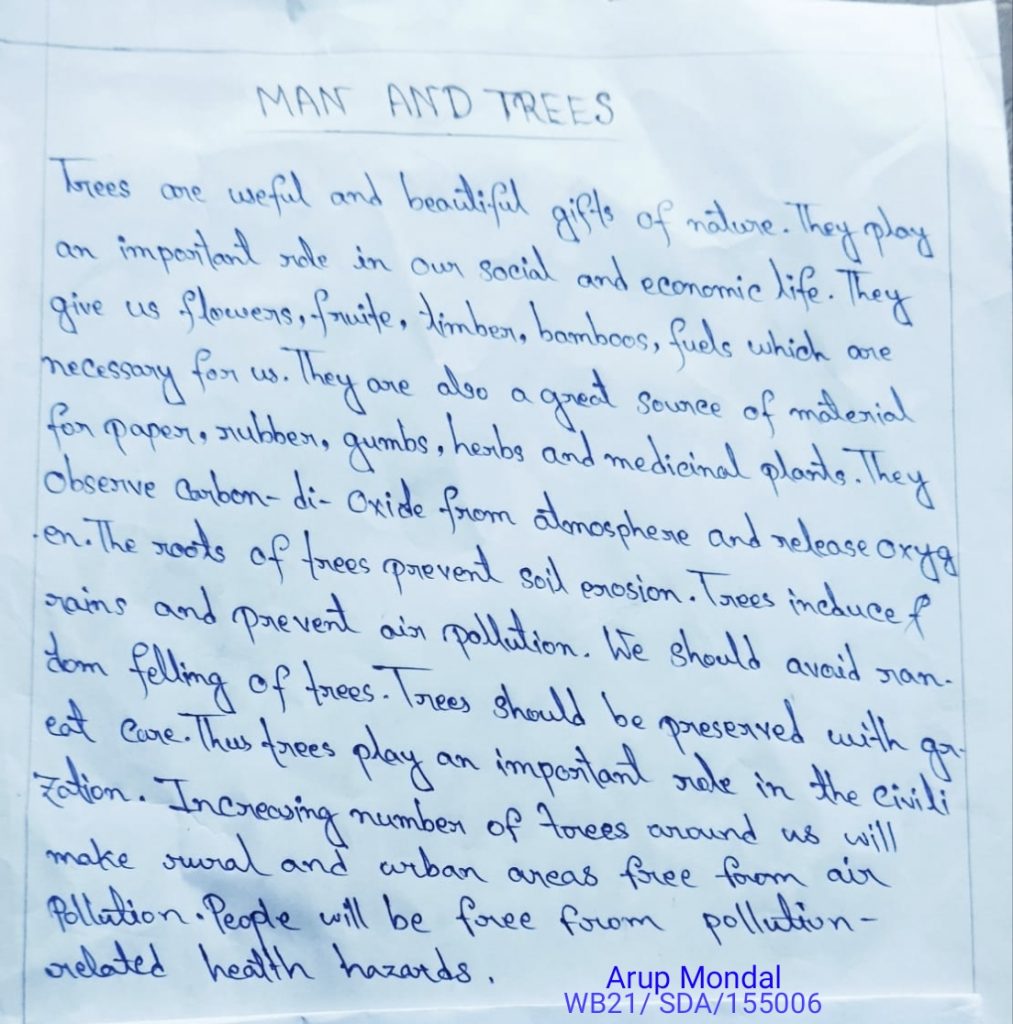 MAN AND TREES
Trees are useful and beautiful gifts of nature. They play
an important role in our social and economic life. They
give us flowers, fruite, timber, bamboos, fuels which are
necessary for us. They are also a great source of material
for paper, rubber, gumbs, herbs and medicinal plants. They
Observe Carbon-di-Oxide from atmosphere and release oxyg
-en. The roots of trees prevent soil erosion. Trees induce
rains and prevent air pollution. We should avoid ran-
dom felling of trees. Trees should be preserved with gr-
eat care. Thus trees play an important role in the civili
zation. Increasing number of trees around us will
make rural and urban areas free from air
Pollution. People will be free from pollution-
related health hazards.
Arup Mondal
WB21/ SDA/155006